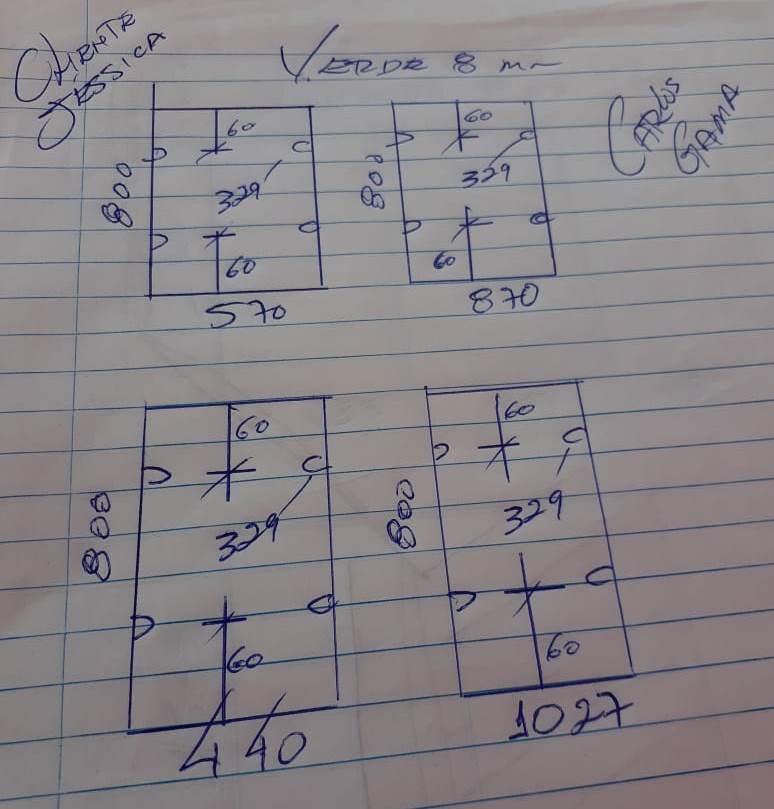 CLIENTE
JÉSSICA
VERDE 8 mm
CARLOS
GAMA
60
800
329
60
570
60
800
329
60
870
60
800
329
60
440
60
800
329
60
1027